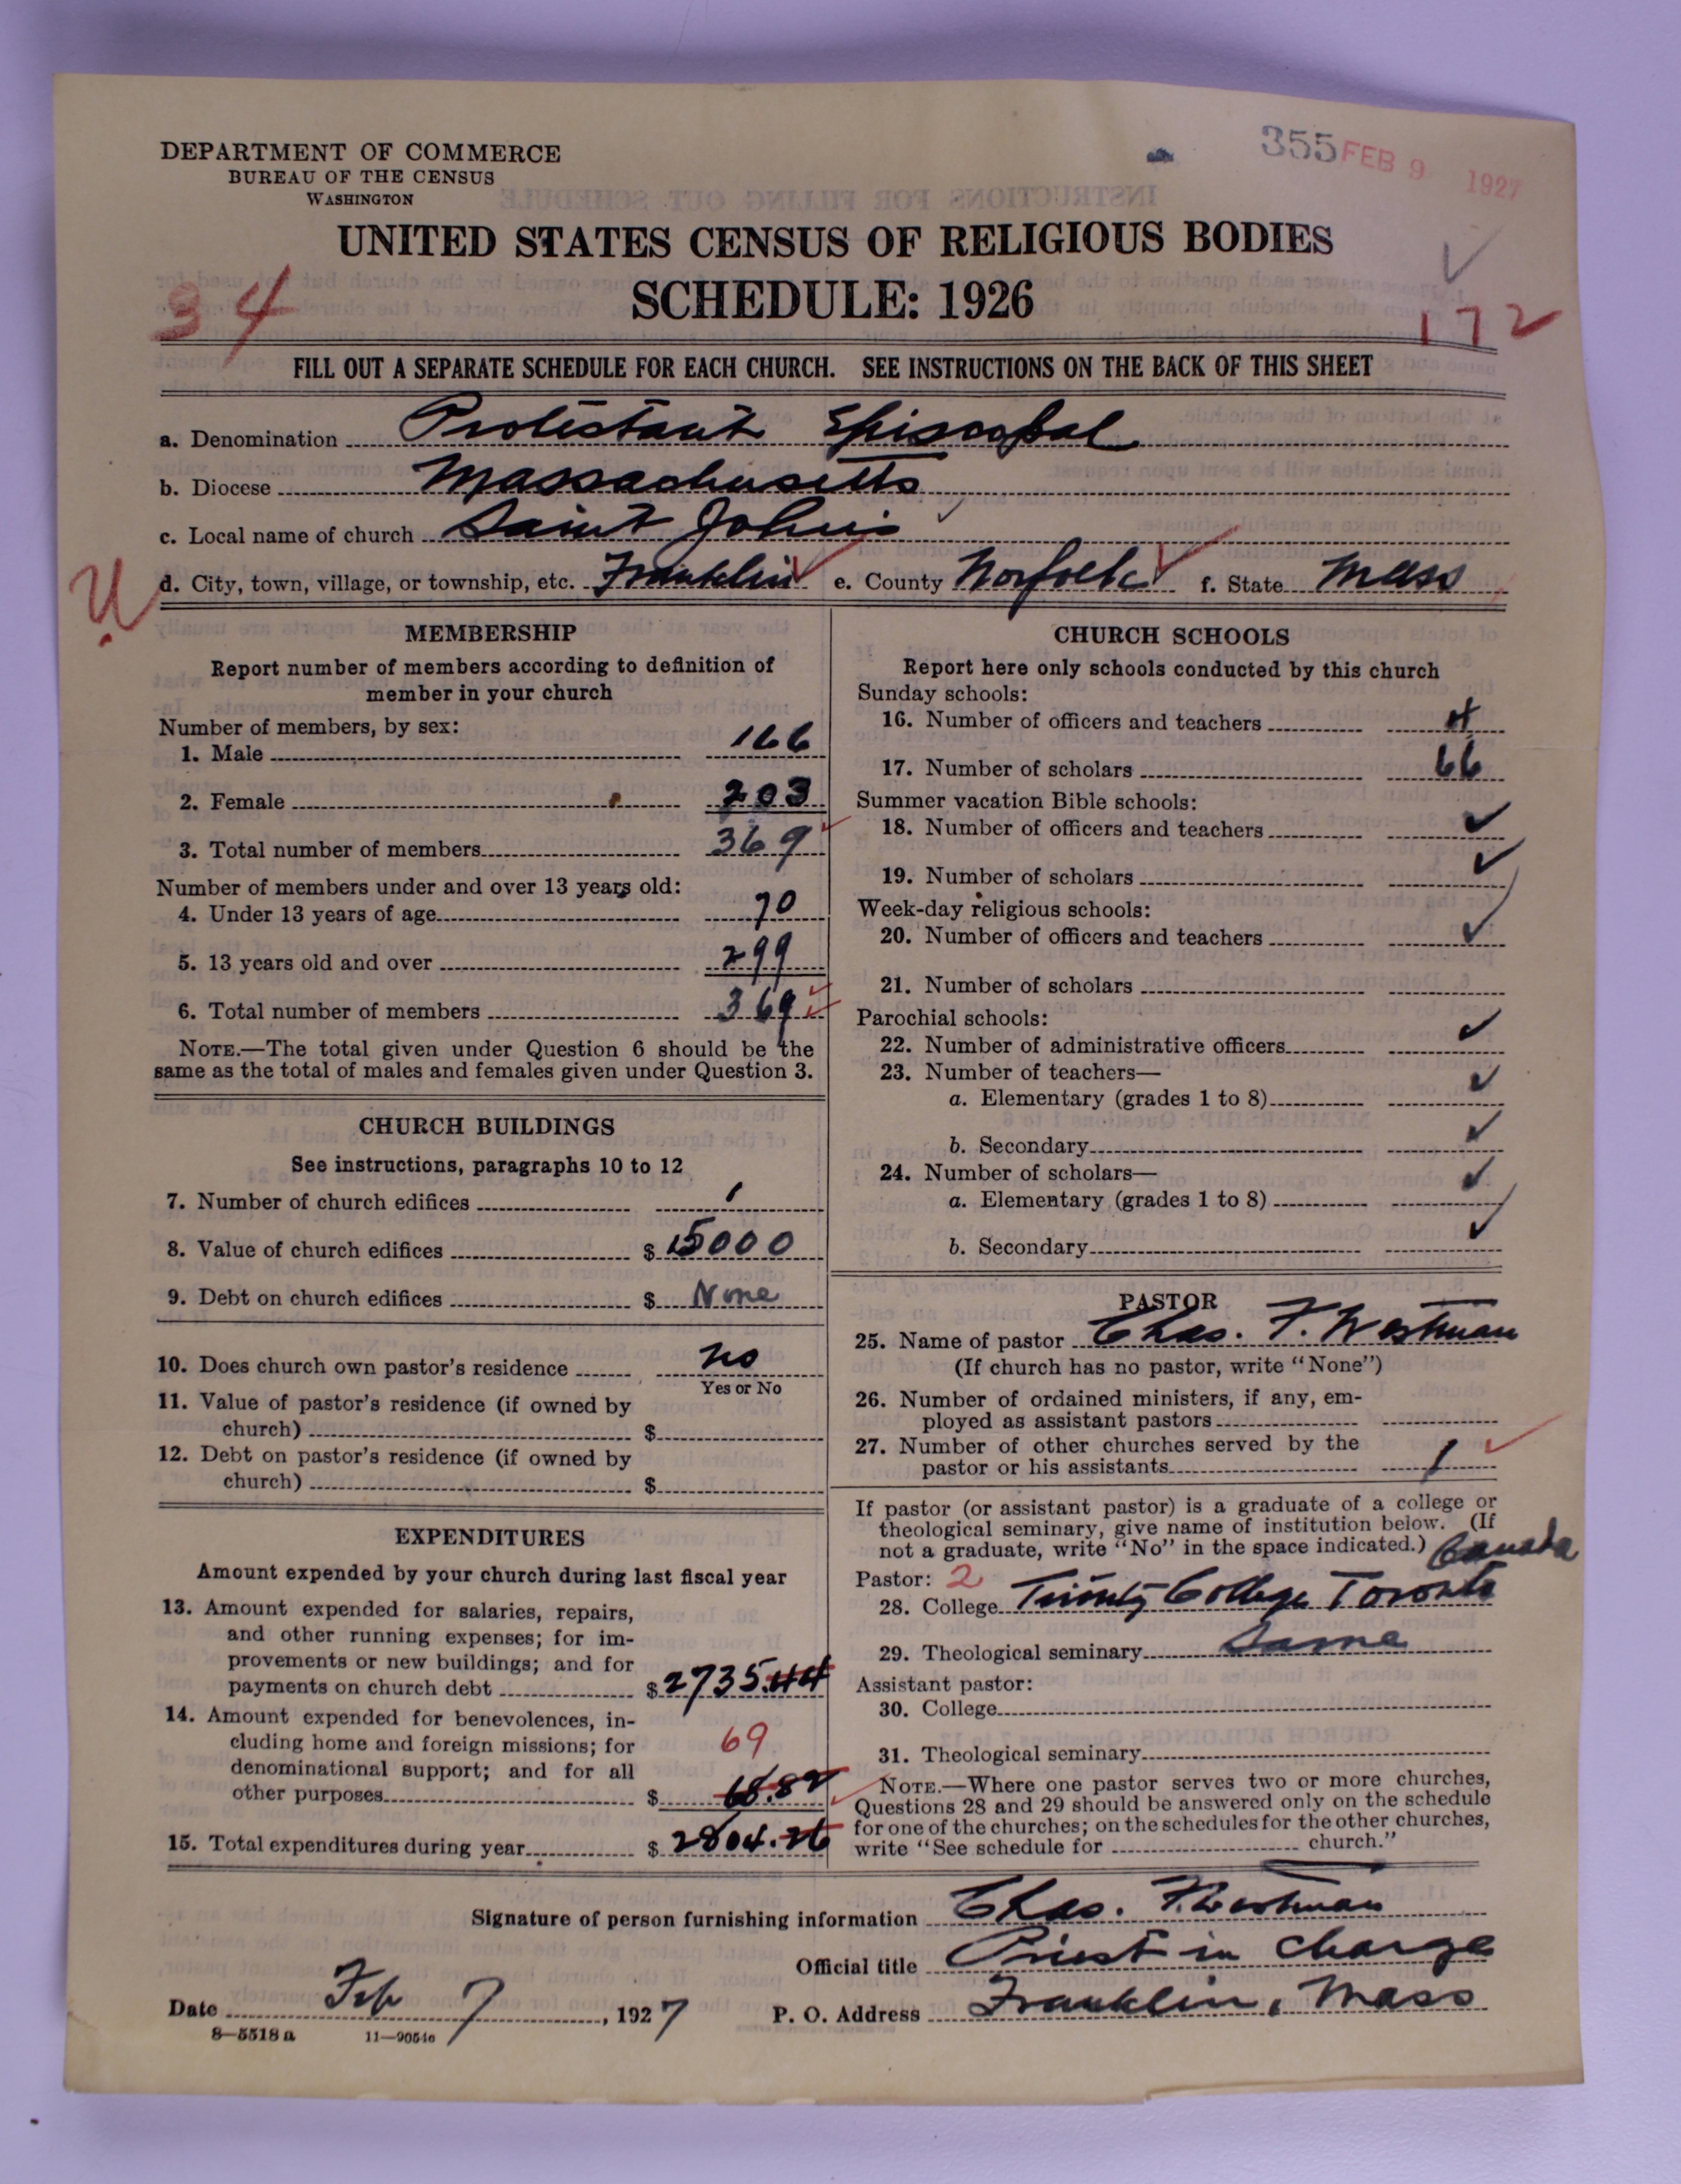 DEPARTMENT OF COMMERCE
BUREAU OF THE CENSUS
WASHINGTON
355 FEB 9 1927
UNITED STATES CENSUS OF RELIGIOUS BODIES
SCHEDULE: 1926
34
172
FILL OUT A SEPARATE SCHEDULE FOR EACH CHURCH. SEE INSTRUCTIONS ON THE BACK OF THIS SHEET
a. Denomination Protestant Episcopal
b. Diocese Massachusetts
c. Local name of church Saint John's
U
d. City, town, village, or township, etc. Franklin e. County Norfolk f. State Mass
MEMBERSHIP
Report number of members according to definition of
member in your church
Number of members, by sex:
1. Male 166
2. Female 203
3. Total number of members 369
Number of members under and over 13 years old:
4. Under 13 years of age 70
5. 13 years old and over 299
6. Total number of members 369
NOTE.—The total given under Question 6 should be the
same as the total of males and females given under Question 3.
CHURCH BUILDINGS
See instructions, paragraphs 10 to 12
7. Number of church edifices 1
8. Value of church edifices $ 15000
9. Debt on church edifices $ None
10. Does church own pastor's residence no
Yes or No
11. Value of pastor's residence (if owned by
church) $
12. Debt on pastor's residence (if owned by
church) $
EXPENDITURES
Amount expended by your church during last fiscal year
13. Amount expended for salaries, repairs,
and other running expenses; for im-
provements or new buildings; and for
payments on church debt $ 2735.44
14. Amount expended for benevolences, in-
cluding home and foreign missions; for
denominational support; and for all
69
other purposes $ 68.82
15. Total expenditures during year $ 2804.26
CHURCH SCHOOLS
Report here only schools conducted by this church
Sunday schools:
16. Number of officers and teachers
17. Number of scholars 66
Summer vacation Bible schools:
18. Number of officers and teachers
19. Number of scholars
Week-day religious schools:
20. Number of officers and teachers
21. Number of scholars
Parochial schools:
22. Number of administrative officers
23. Number of teachers—
a. Elementary (grades 1 to 8)
b. Secondary
24. Number of scholars—
a. Elementary (grades 1 to 8)
b. Secondary
PASTOR
25. Name of pastor Chas. F. Westman
(If church has no pastor, write "None")
26. Number of ordained ministers, if any, em-
ployed as assistant pastors
27. Number of other churches served by the
pastor or his assistants 1
If pastor (or assistant pastor) is a graduate of a college or
theological seminary, give name of institution below. (If
not a graduate, write "No" in the space indicated.) Canada
Pastor: 2
28. College Trinity College Toronto
29. Theological seminary Same
Assistant pastor:
30. College
31. Theological seminary
NOTE.—Where one pastor serves two or more churches,
Questions 28 and 29 should be answered only on the schedule
for one of the churches; on the schedules for the other churches,
write "See schedule for church."
Signature of person furnishing information Chas. F. Westman
Official title Priest in charge
Date Feb 7, 1927 P. O. Address Franklin, Mass
8—5518 a 11—9054c